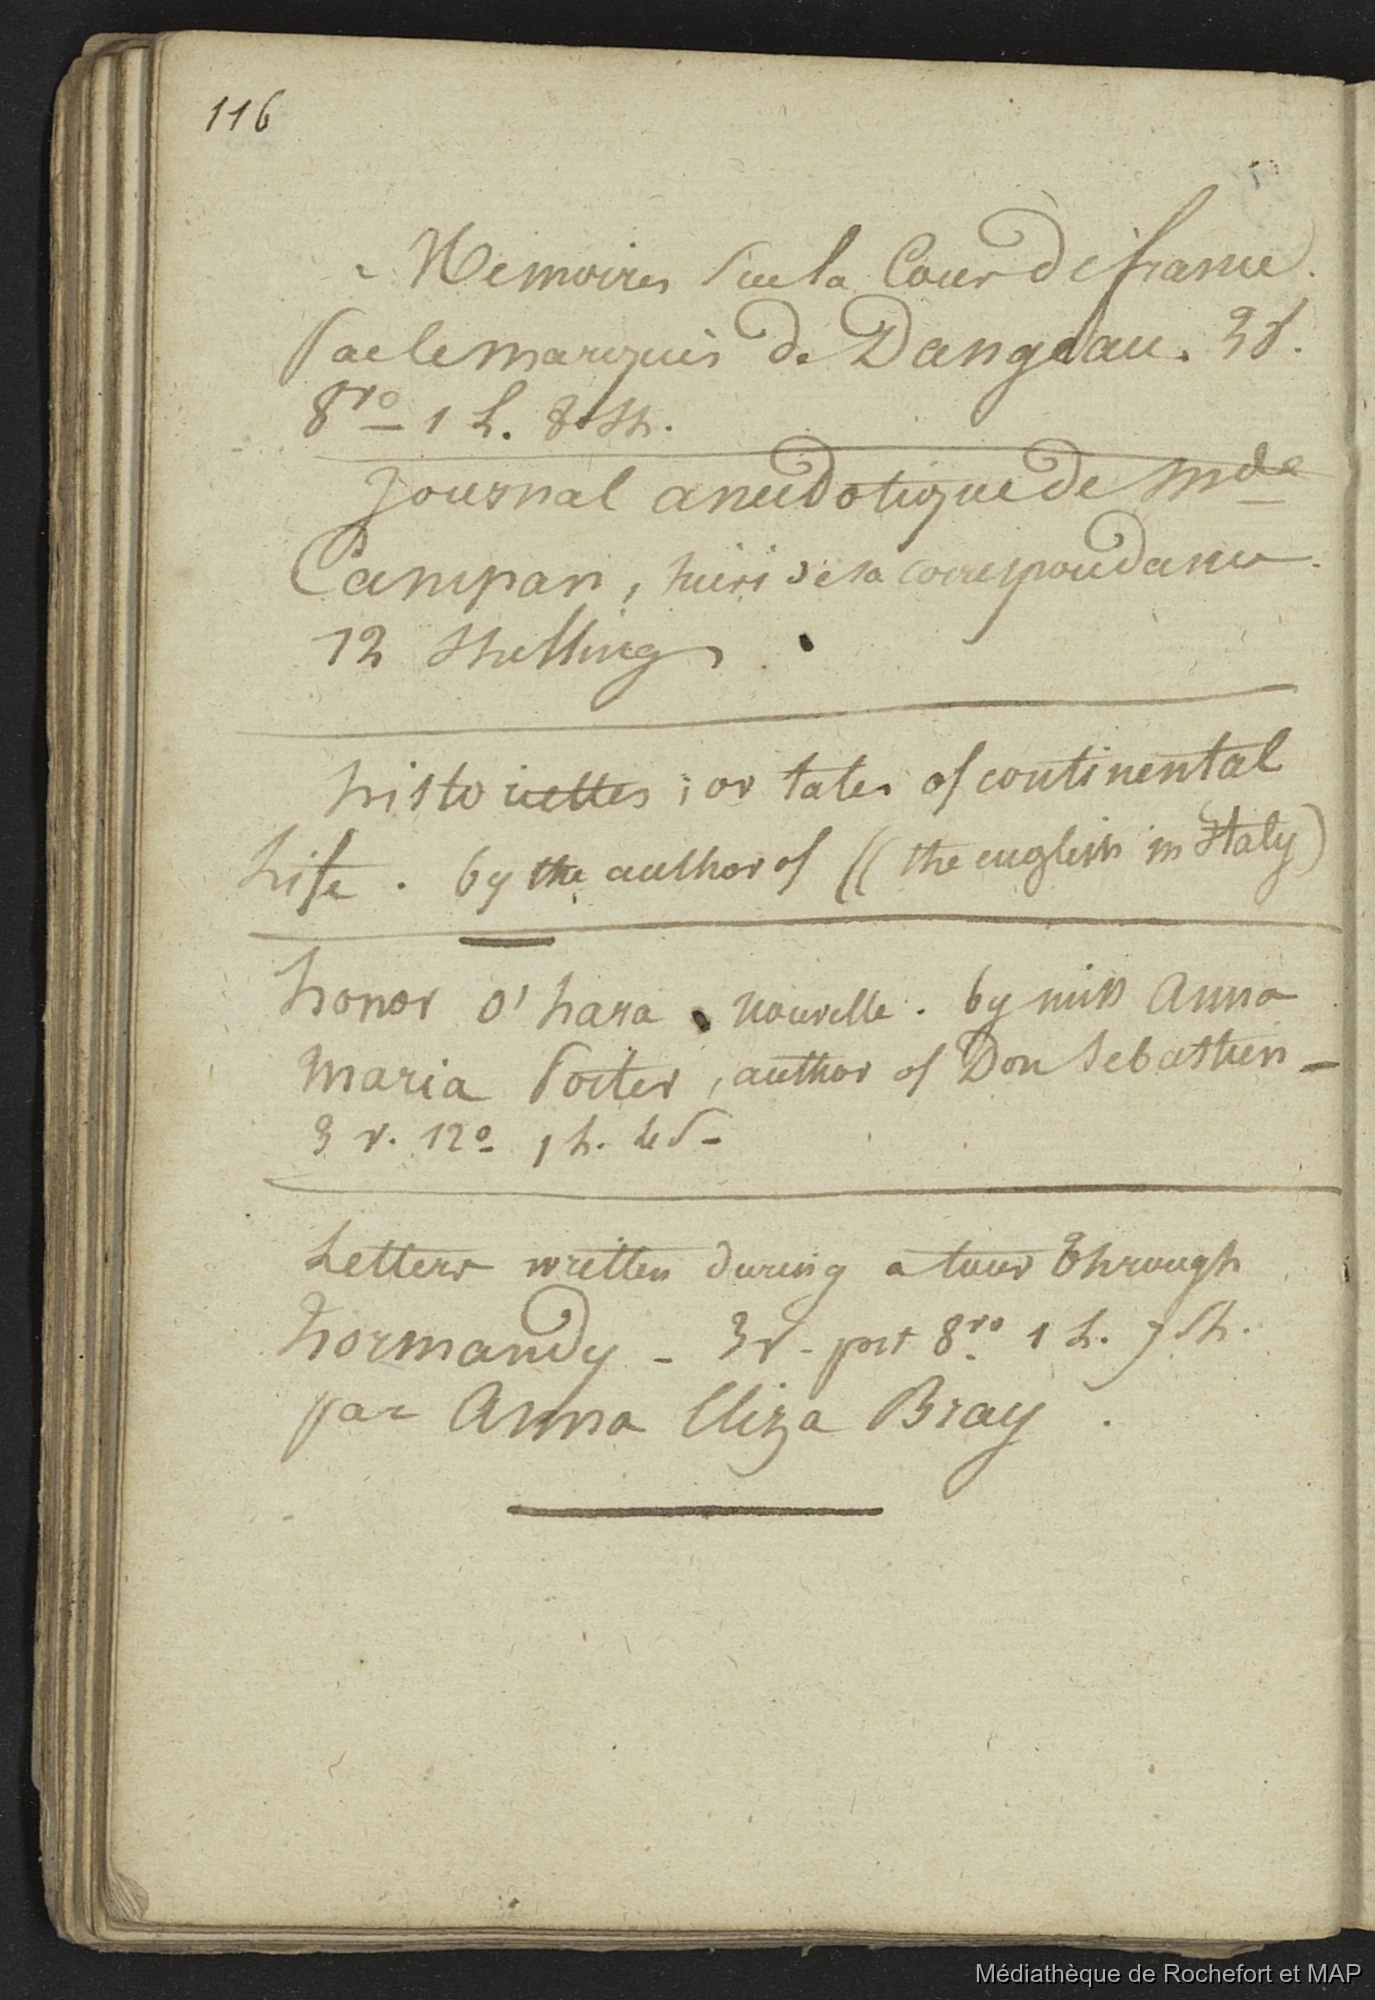 116
Memoires sur la Cour de france.
Par le marquis de Dangeau. 3 v.
8vo 1 L. 8 sh.
Journal anecdotique de Mde
Campan, suivi de sa correspondance.
12 shelling
historiettes ; or tales of continental
Life . by the author of (( the english in Italy)
honor o'hara . nouvelle . by miss Anna
Maria Porter , author of Don Sebastien -
3 v. 12o 1 L. 4 s -
Letters written during a tour Through
Normandy - 3 v - pet 8vo 1 L. 7 sh.
par Anna Eliza Bray .
Médiathèque de Rochefort et MAP